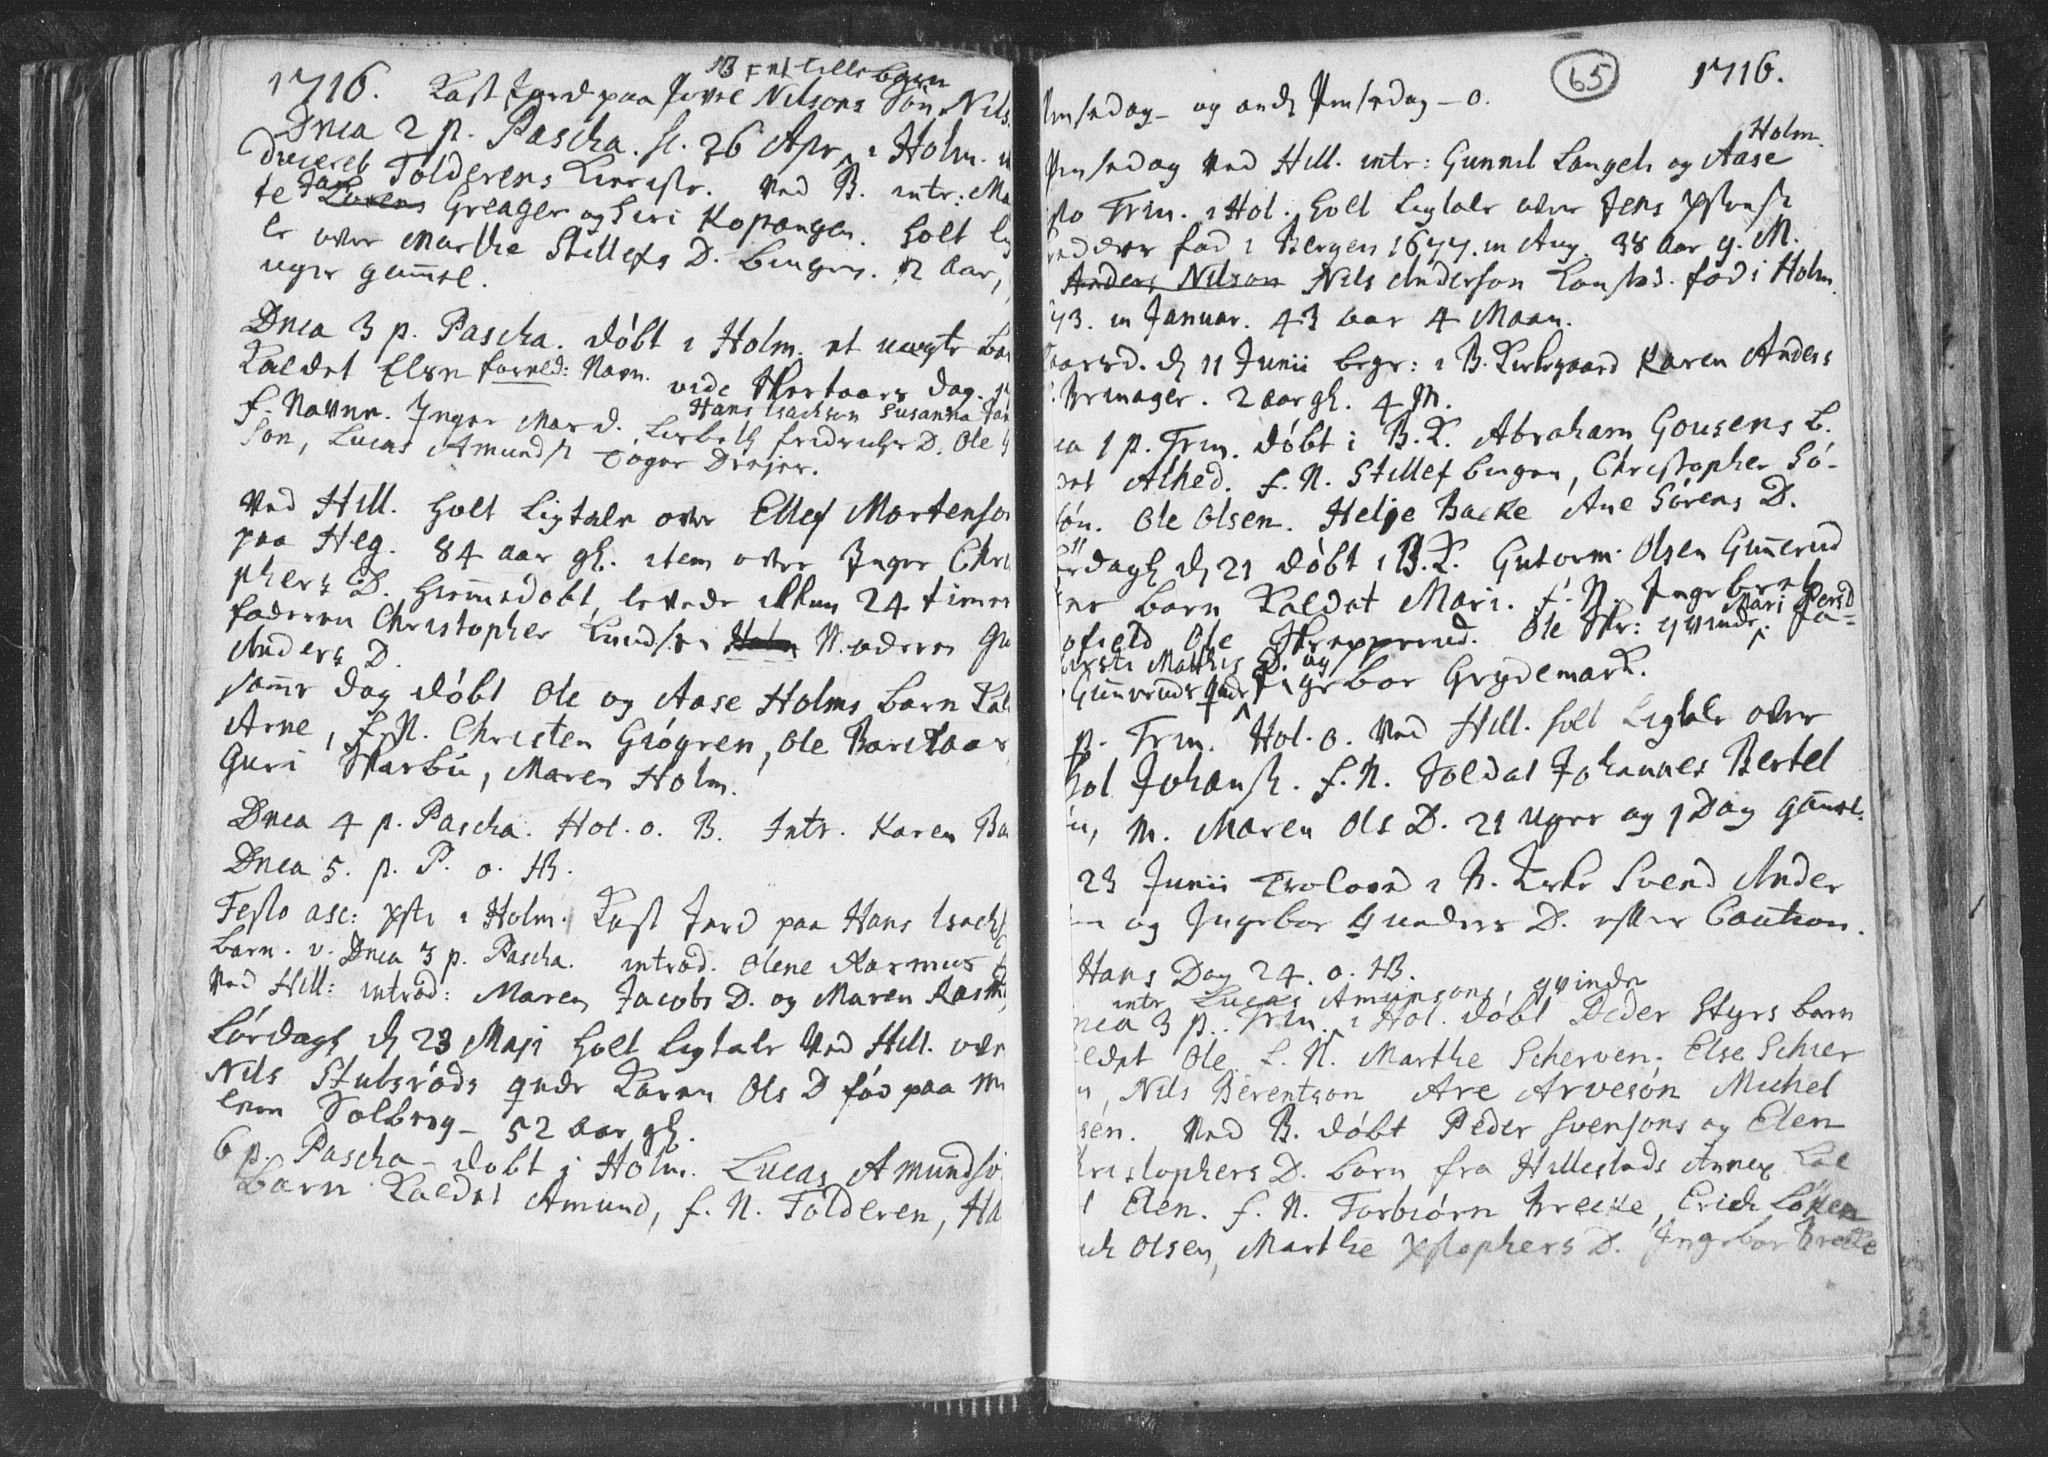 1716.
NB Et lille barn
Kast Jord paa Nilsons Søn Nils
Dnca 2 p. Pascha. sc. 26 Apr. i Holm.
Tolderens Ved B. intr: Ma
te Jan Lorens Greager og Siri Kopangen. holt lig
le over Marthe Stillefs D. Bingen. 12 Aar,
uger gamel.
Dnca 3 p. Pascha. døbt i Holm. et uegte bar
Kaldet Else forned: Navn. vide Skertaars Dag.
f. Navne. Inger Mas d. Lisbeth Fridrichs D. Ole
Hans Isachson Susanna Jan
Son, Lucas Amunds. Roger Drejer.
Ved Hill. holt Ligtale over Ellef Mortenson
paa Heg. 84 aar gl. item over Inger Chri
phers D. hiemmedøbt, levede ikkun 24 timer
faderen Christopher Knudsen Holm Moderen Gu
Anders D.
samme dag døbt Ole og Aase Holms barn Kal
Arne, f. N. Christen Giøgren, Ole
Guri Skarbu, Maren Holm.
Dnca 4 p. Pascha. Hol. o. B. Intr. Karen Ba
Dnca 5. p. P. o. HB.
Festo asc: Xsti i Holm. Kast Jord paa Hans Isachs
barn. v. Dnca 3 p. Pascha. introd. Olene Rasmus
Ved Hill: introd: Maren Jacobs D. og Maren Rasm
Lørdags d. 23 Maji holt Ligtale Ved Hill. over
Nils Stubsrøds qvde Karen Ols D fød paa
lem Solberg 52 aar gl.
6 p. Pascha døbt i Holm. Lucas Amundsø
barn Kaldet Amund, f. N. Tolderen, Ha
65
1716.
Pinsedag og anden Pinsedag o.
Holm.
Pinsedag Ved Hill. intr: Gunnil Langeli og Aase
sto Trin. i Hol. holt Ligtale over Jens
fød i Bergen 1677. in Aug. 38 Aar 9. M.
Anders Nilson Nils Anderson fød i Holm
73. in Januar. 43 aar 4 Maan.
d. 11 Junii begr: i B. Kirkegaard Karen Anders
2 aar gl. 4 M.
ca 1 p. Trin. døbt i B. K. Abraham Gousens B.
det Alhed. f. N. Stillef Bingen, Christopher Sø-
søn. Ole Olsen. Helje Backe Ane Sørens D.
dags d. 21 døbt i B. K. Gutorm Olsen Gunnerud
barn Kaldet Mari. f. N. Ingebret
Ole Skrapperud. Ole Skr: qvinde. Mari Persd
Kirsti Mathis D. og
Gunneruds qvde Ingebor Grydemark.
p. Trin. Hol. o. Ved Hill. holt Ligtale over
Johans. f. N. Soldat Johannes Bertel
M. Maren Ols D. 21 Uger og 1 Dag gamel.
23 Junii Trolovd i N. Kirke Svend Ander
og Ingebor Gunders D. efter Caution.
Hans Dag 24. o. HB.
intr Lucas Amunsons, qvinde
nca 3 p. Trin. i Hol. døbt Peder Styrs barn
ldet Ole. f. N. Marthe Scherven. Else Schier
Nils Berentson Are Arvesøn Michel
sen. Ved B. døbt Peder Svensons og Elen
hristophers D. barn fra Hillestads Annex Kal
t Elen. f. N. Torbiørn Brecke, Erich Løken
ich Olsen, Marthe Xstophers D. Ingebor Brecke